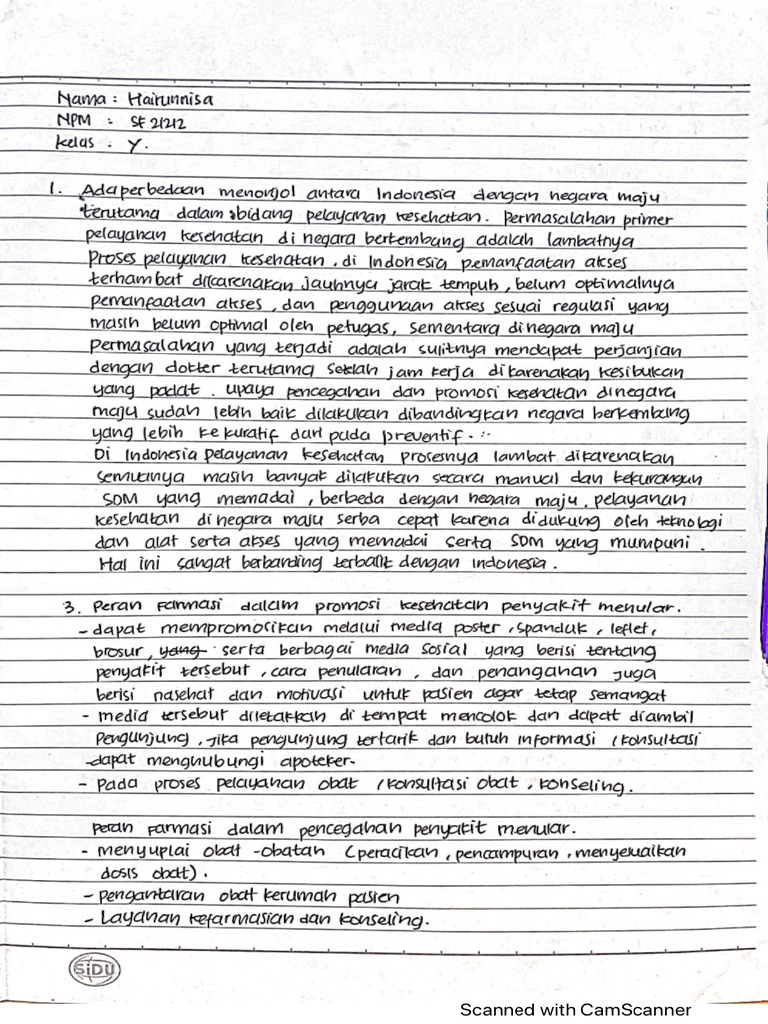 Nama : Hairunnisa
NPM : SF 21212
Kelas : Y.
1. Ada perbedaan menonjol antara Indonesia dengan negara maju
terutama dalam bidang pelayanan kesehatan. Permasalahan primer
pelayanan kesehatan di negara berkembang adalah lambatnya
proses pelayanan kesehatan, di Indonesia pemanfaatan akses
terhambat dikarenakan jauhnya jarak tempuh, belum optimalnya
pemanfaatan akses, dan penggunaan akses sesuai regulasi yang
masih belum optimal oleh petugas, sementara di negara maju
permasalahan yang terjadi adalah sulitnya mendapat perjanjian
dengan dokter terutama setelah jam kerja dikarenakan kesibukan
yang padat. Upaya pencegahan dan promosi kesehatan di negara
maju sudah lebih baik dilakukan dibandingkan negara berkembang
yang lebih ke kuratif dari pada preventif.
Di Indonesia pelayanan kesehatan prosesnya lambat dikarenakan
semuanya masih banyak dilakukan secara manual dan kekurangan
SDM yang memadai, berbeda dengan negara maju, pelayanan
kesehatan di negara maju serba cepat karena didukung oleh teknologi
dan alat serta akses yang memadai serta SDM yang mumpuni.
Hal ini sangat berbanding terbalik dengan Indonesia.
3. Peran Farmasi dalam promosi kesehatan penyakit menular.
- dapat mempromosikan melalui media poster, spanduk, leflet,
brosur, yang serta berbagai media sosial yang berisi tentang
penyakit tersebut, cara penularan, dan penanganan juga
berisi nasehat dan motivasi untuk pasien agar tetap semangat
- media tersebut diletakkan di tempat mencolok dan dapat diambil
pengunjung, jika pengunjung tertarik dan butuh informasi / konsultasi
dapat menghubungi apoteker.
- Pada proses pelayanan obat / konsultasi obat, konseling.
Peran Farmasi dalam pencegahan penyakit menular.
- menyuplai obat-obatan (peracikan, pencampuran, menyesuaikan
dosis obat).
- pengantaran obat kerumah pasien
- Layanan kefarmasian dan konseling.
SiDU
Scanned with CamScanner